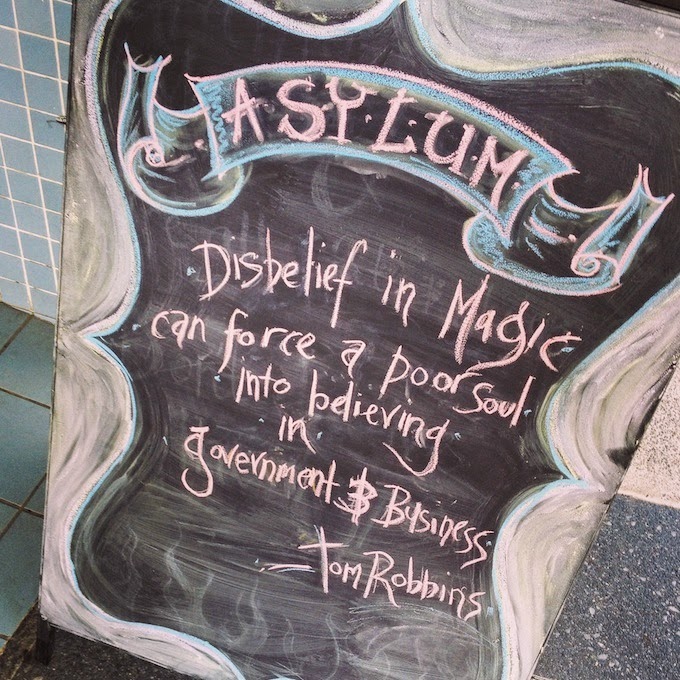 A.S.Y.L.U.M.
Disbelief in Magic
can force a poor soul
into believing
in
government & Business
— Tom Robbins